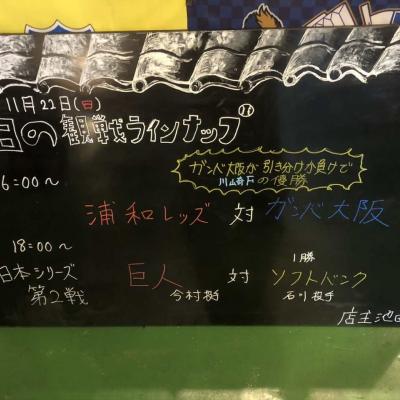 11月22日(日)
日の観戦ラインナップ
ガンバ大阪が引き分けか負けで
川崎Fの優勝
6:00〜
浦和レッズ 対 ガンバ大阪
18:00〜
日本シリーズ 巨人 対 ソフトバンク
1勝
第2戦 今村投手 石川投手
店主池